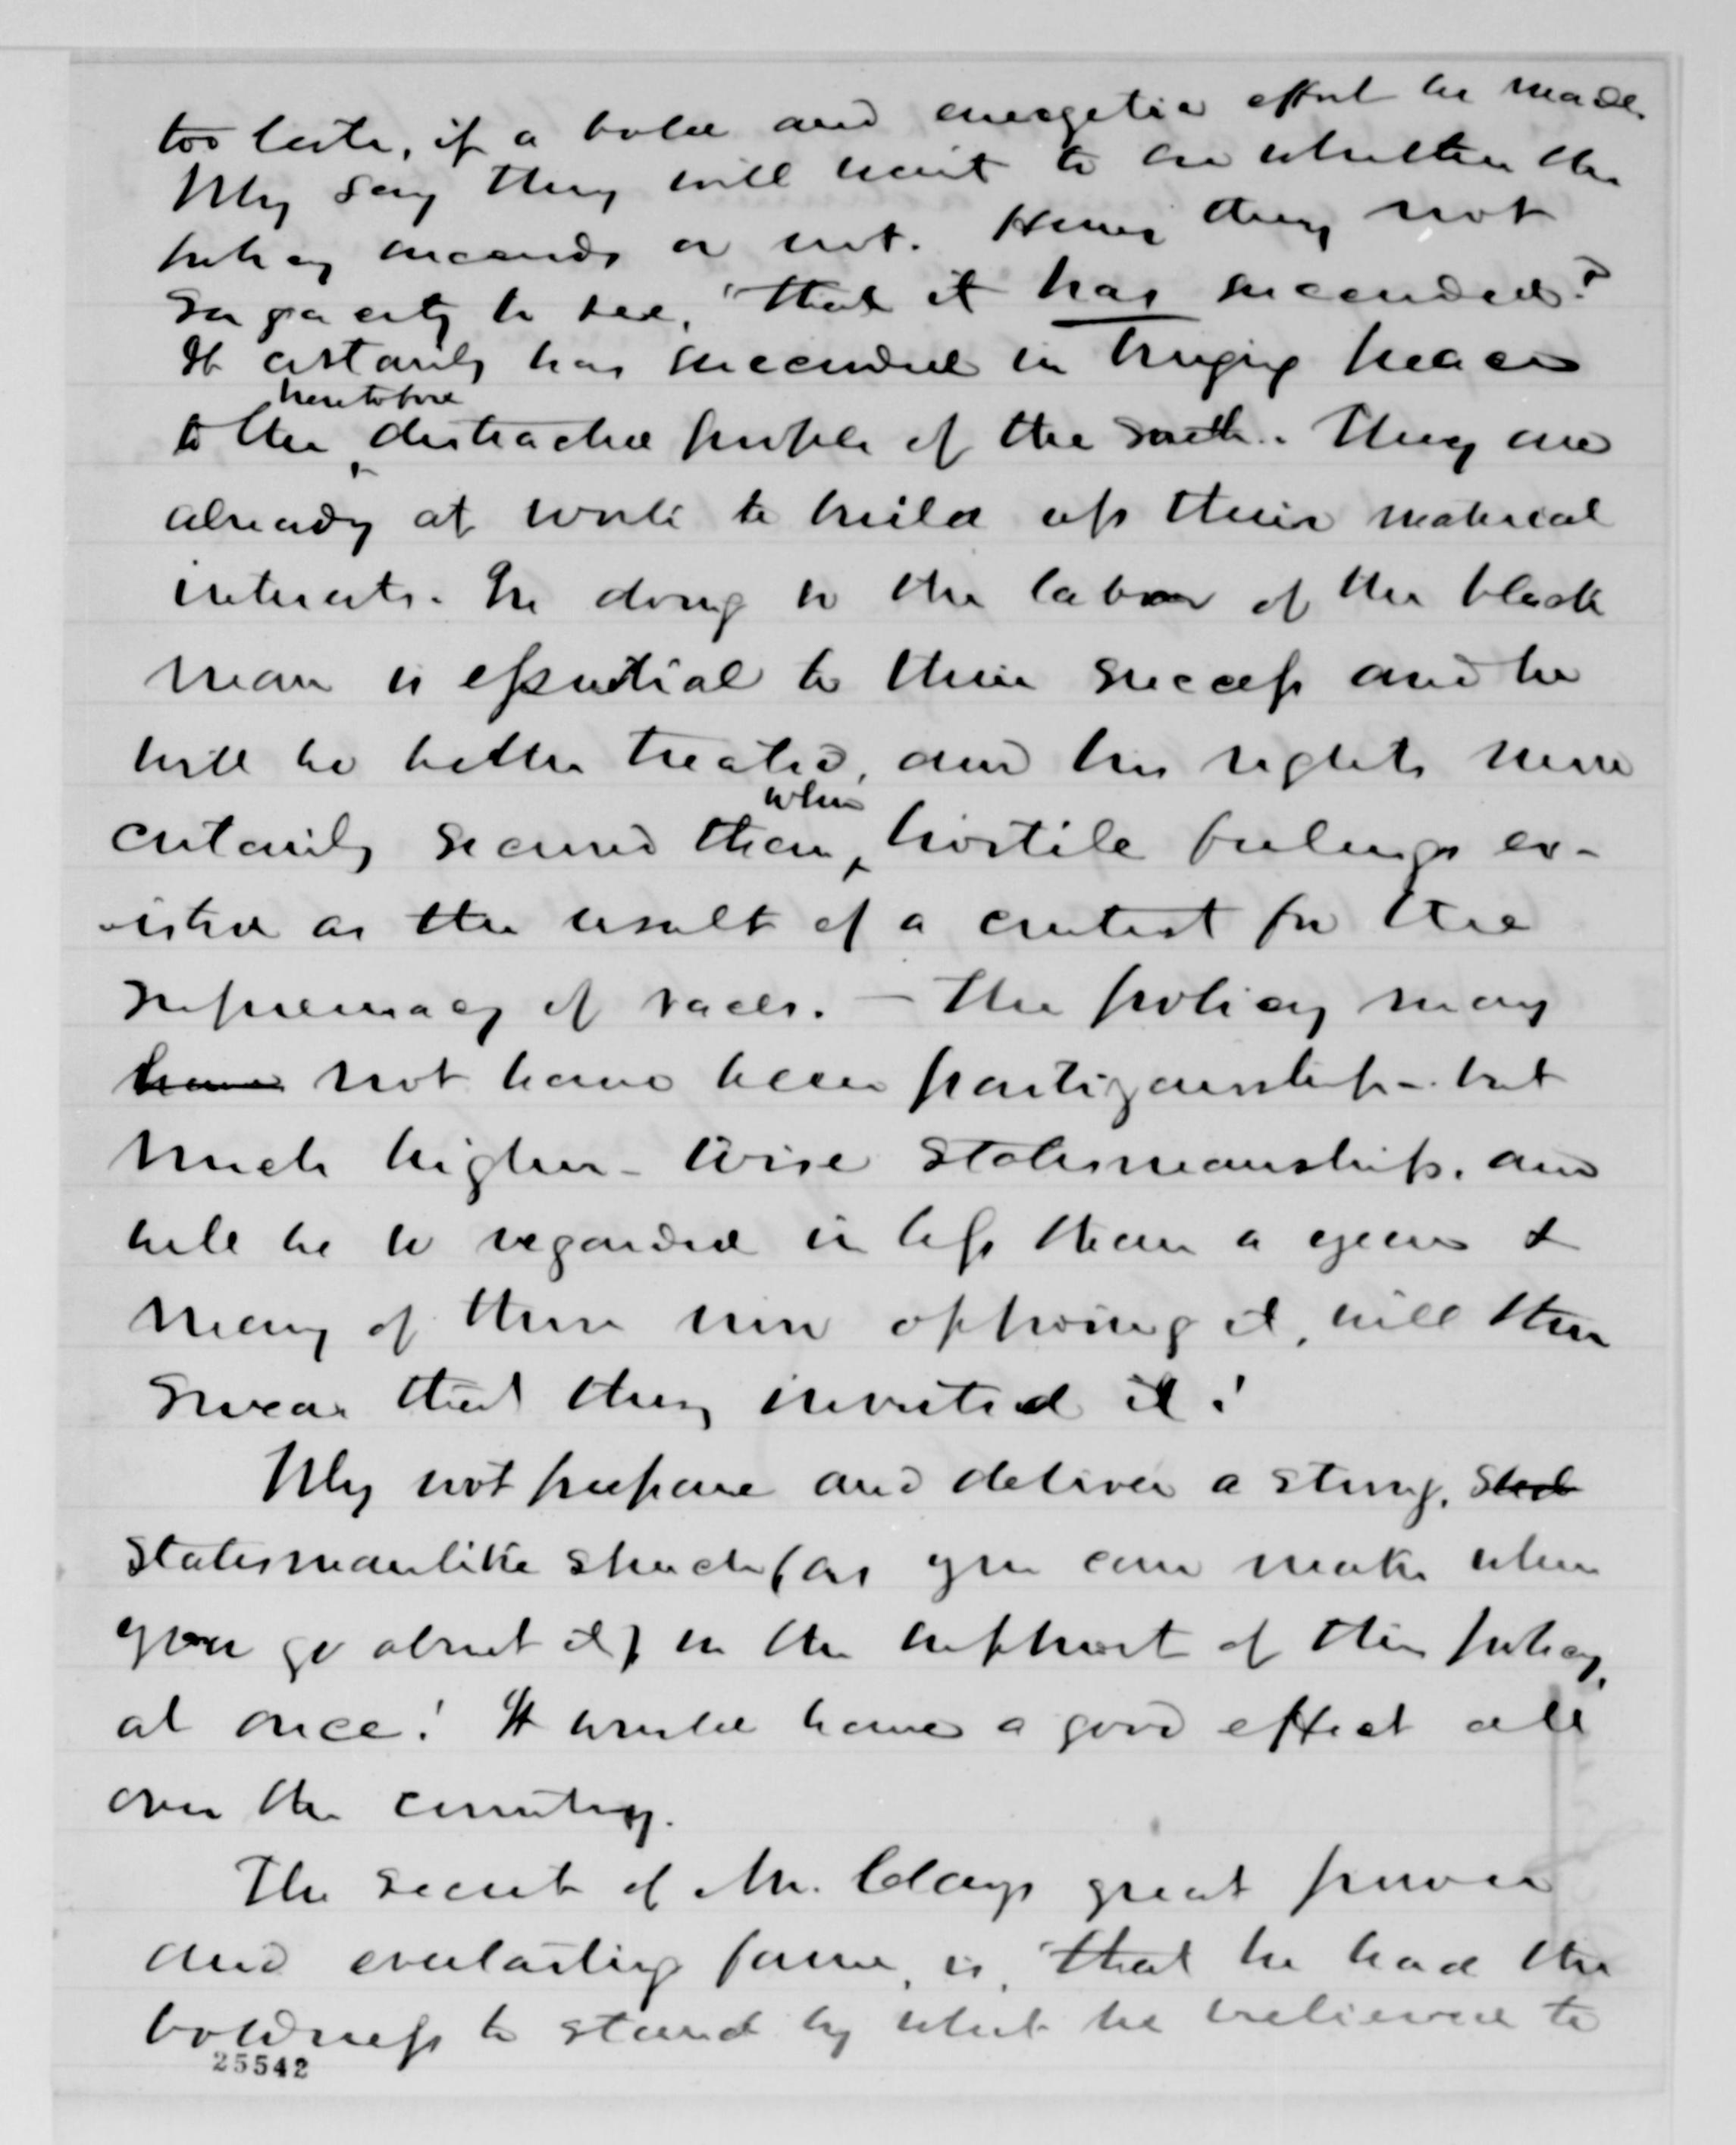 too late, if a bold and energetic effort be made.
Why say they will wait to see whether the
policy succeeds or not. Have they not
sagacity to see, that it has succeeded?
It certainly has succeeded in bringing peace
heretofore
to the distracted people of the South. They are
already at work to build up their material
interests. In doing so the labor of the black
man is essential to their success and he
will be better treated, and his rights more
when
certainly secured than hostile feelings ex-
isted as the result of a contest for the
supremacy of races. — The policy may
have not have been partizanship - but
much higher - wise statesmanship. and
will be so regarded in less than a year &
many of those now opposing it, will then
swear that they invented it!
Why not prepare and deliver a strong,
statesmanlike speech (as you can make when
you go about it) in the support of this policy,
at once! It would have a good effect all
over the country.
The secret of Mr. Clays great power
and everlasting fame, is, that he had the
boldness to stand by what he believed to
25542